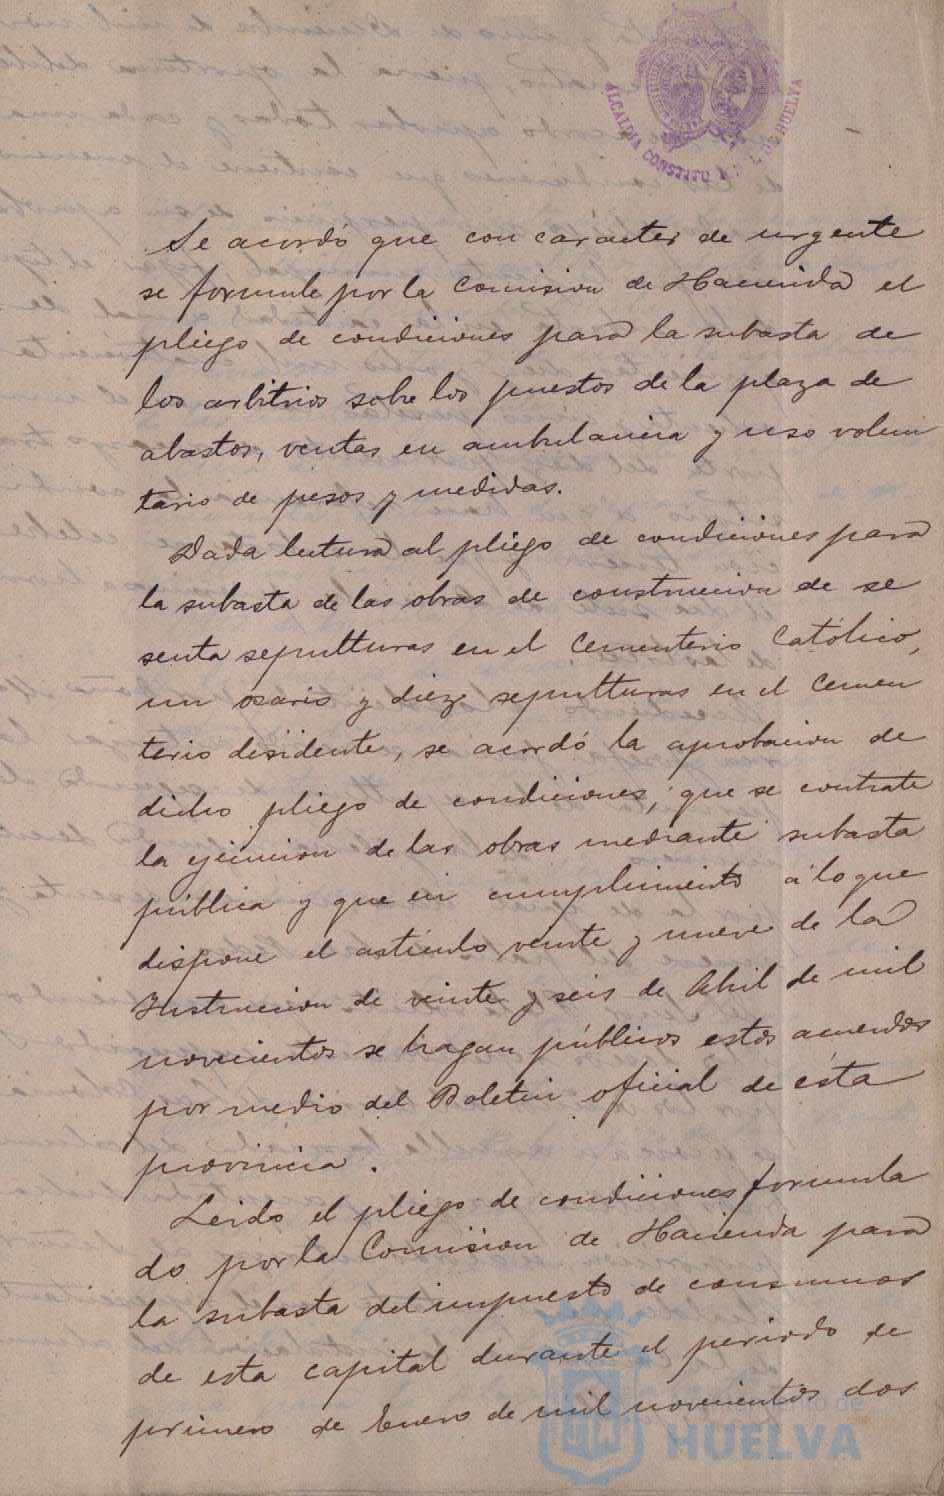 ALCALDIA CONSTITU L DE HUELVA
Se acordó que con caracter de urgente
se formule por la Comision de Hacienda el
pliego de condiciones para la subasta de
los arbitrios sobre los puestos de la plaza de
abastos, ventas en ambulancia y uso volun
tario de pesos y medidas.
Dada lectura al pliego de condiciones para
la subasta de las obras de construccion de se
senta sepulturas en el Cementerio Católico,
un osario y diez sepulturas en el Cemen
terio disidente, se acordó la aprobacion de
dicho pliego de condiciones, que se contrate
la ejecucion de las obras mediante subasta
pública y que en cumplimiento á lo que
dispone el artículo veinte y nueve de la
Instruccion de veinte y seis de Abril de mil
novecientos se hagan públicos estos acuerdos
por medio del Boletin oficial de ésta
provincia.
Leido el pliego de condiciones formula
do por la Comision de Hacienda para
la subasta del impuesto de consumos
de esta capital durante el periodo de
primero de Enero de mil novecientos dos
Ayuntamiento de
HUELVA